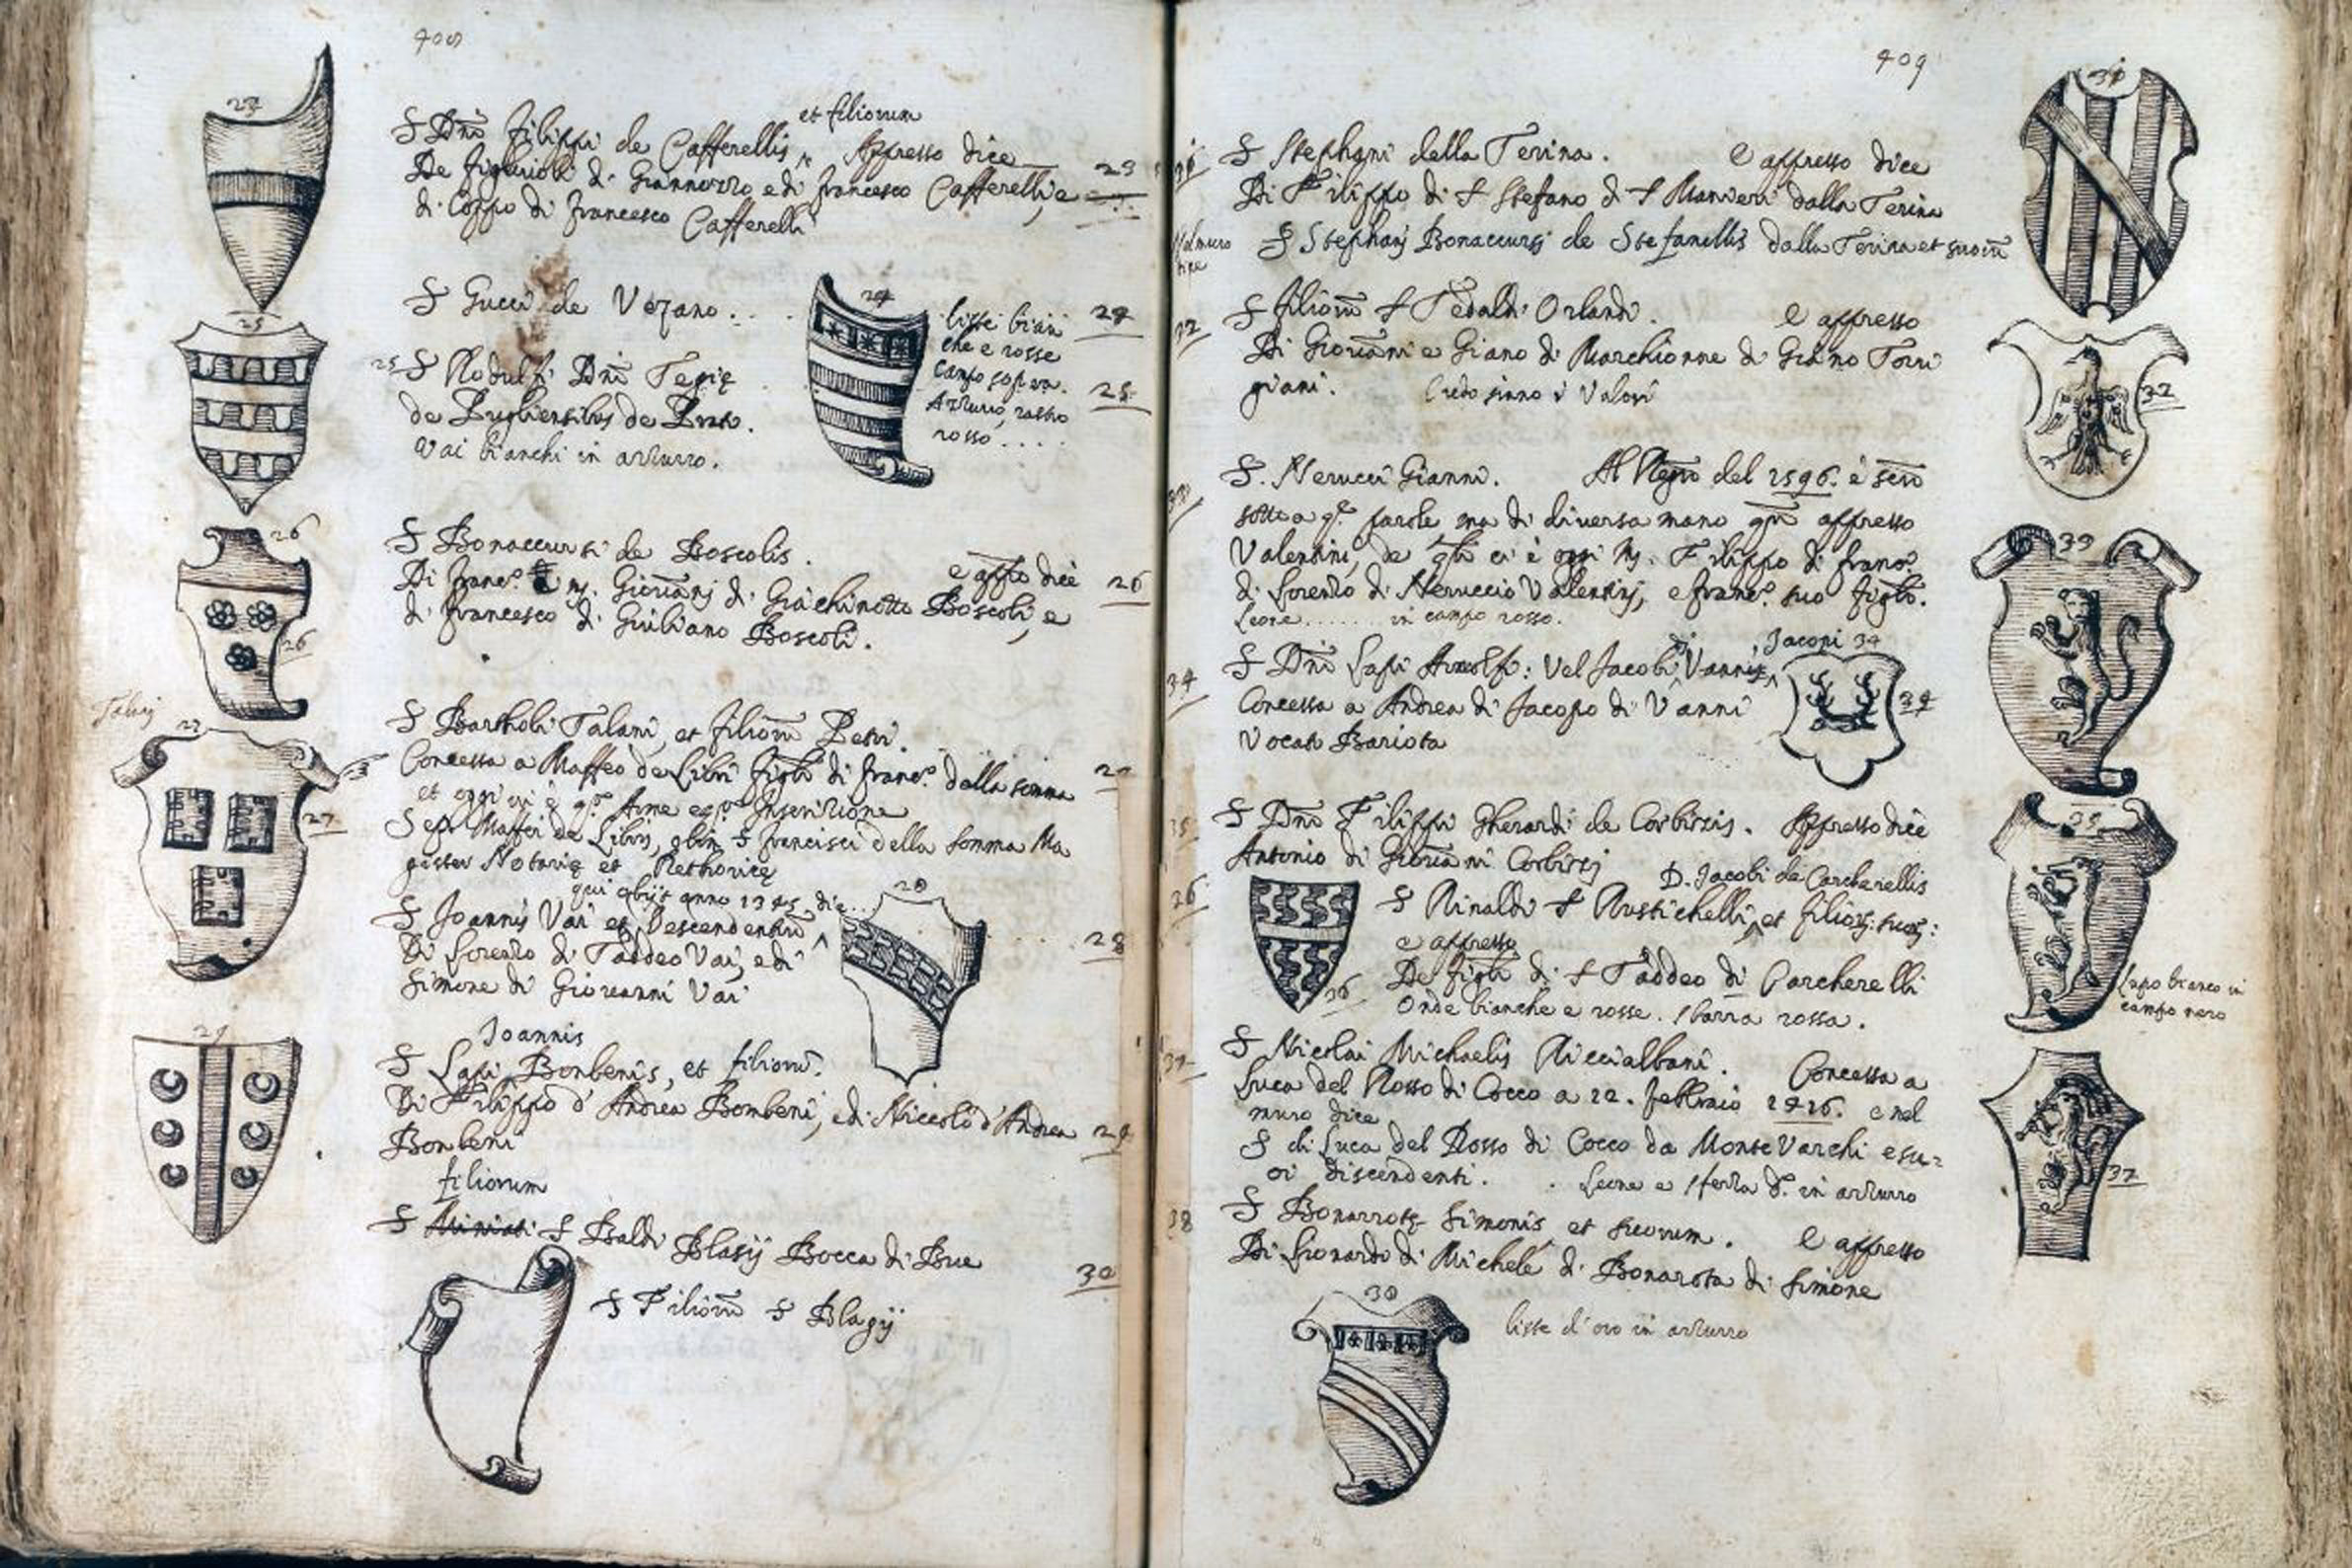 408
23
et filiorum
S Dnī Filippi de Cafferellis, Appresso dice
De figliuoli di Giannozzo e di francesco Cafferelli, e
di Coppo di francesco Cafferelli
23
S Gucci de Vezano . .
24
24
lisse bian
che e rosse
Campo sopra
Azzurro, rastro
rosso . . . .
25
25 S Rodulfi Dnī Tegię
de Pugliensibus de Prato.
Vai bianchi in azzurro.
25
26
S Bonaccursi de Boscolis . e appo dice
Di Franc.º
Giovānj di Giachinotto Boscoli, e
di francesco di Giuliano Boscoli.
26
26
27
S Bartholi Talani, et filiorū Petri.
Concessa a Maffeo de Libri figli di franc.º della somma
et oggi vi è
Arme
Inscrizione
Maffei de Libris, olim S francisci della somma Ma
gister Notarię et Rethoricę
qui obijt anno 1345 die...
27
27
28
S Joannis Vai et Descendentiū
Di Lorenzo di Taddeo Vai, e di
Simone di Giovanni Vai
28
29
Joannis
S Lapi Bonbenis, et filiorū.
Di Filippo d'Andrea Bombeni, e di Niccolò d'Andrea
Bonbeni
29
filiorum
S Miniati S Baldi Blasij Bocca di Bue
30
S Filiorū S Blagij
409
31
31 S Stephani della Terina . E appresso dice
Di Filippo di S Stefano di S Ranieri dalla Terina
Nel muro
S Stephanj Bonaccursj de Stefanellis dalla Terina et suorū
32 S filiorū S Tedaldi Orlandi . E appresso
Di Giovāni e Giano di Marchionne di Giano Torri
giani. Credo sieno i Valori
32
33
S. Nerucci Gianni. Al
del 1596. è
sotto a
parole ma di diversa mano
appresso
Valentini, de
ci è oggi
Filippo di franc.º
di Lorenzo di Neruccio Valentinj, e franc.º suo figlo.
Leone . . . . . . in campo rosso.
33
34 S Dnī Lapi Arnolfi: Vel Jacobi Vannis
di Jacopi 34
Concessa a Andrea di Jacopo di Vanni
Vocato Bariota
34
35 S Dnī Filippi Gherardi de Corbizzis . Appresso dice
Antonio di Giovāni Corbizzj
35
Lupo bianco in
campo nero
D. Jacobi de Carcherellis
36 S Rinaldi S Rustichelli, et filior: suor:
e appresso
De figli di S Taddeo di Carcherelli
Onde bianche e rosse. Sbarra rossa.
36
37 S Nicolai Michaelis Riccialbani. Concessa a
Luca del Rosso di Cocco a 22. Febbraio 1426. e nel
muro dice
S di Luca del Rosso di Cocco da Monte Varchi e su=
oi discendenti. Leone e sferza d.º in azzurro
37
38 S Bonarrotę Simonis et suorum. E appresso
Di Lionardo di Michele di Bonarota di Simone
38
lisse d'oro in azzurro